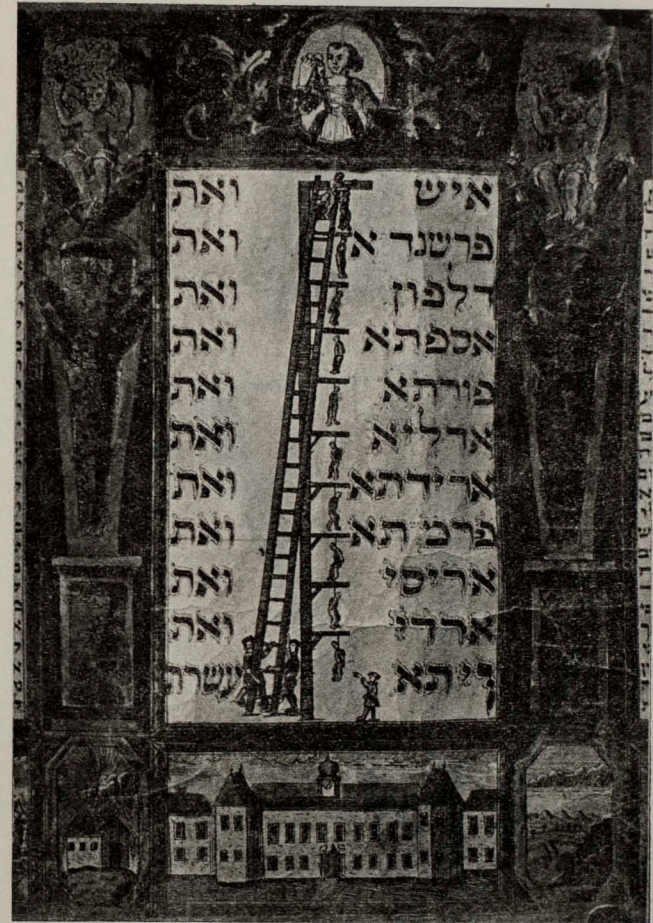 איש ואת
פרשנדא ואת
דלפון ואת
אספתא ואת
פורתא ואת
אדליא ואת
ארידתא ואת
פרמשתא ואת
אריסי ואת
ארדי ואת
ויתא עשרת